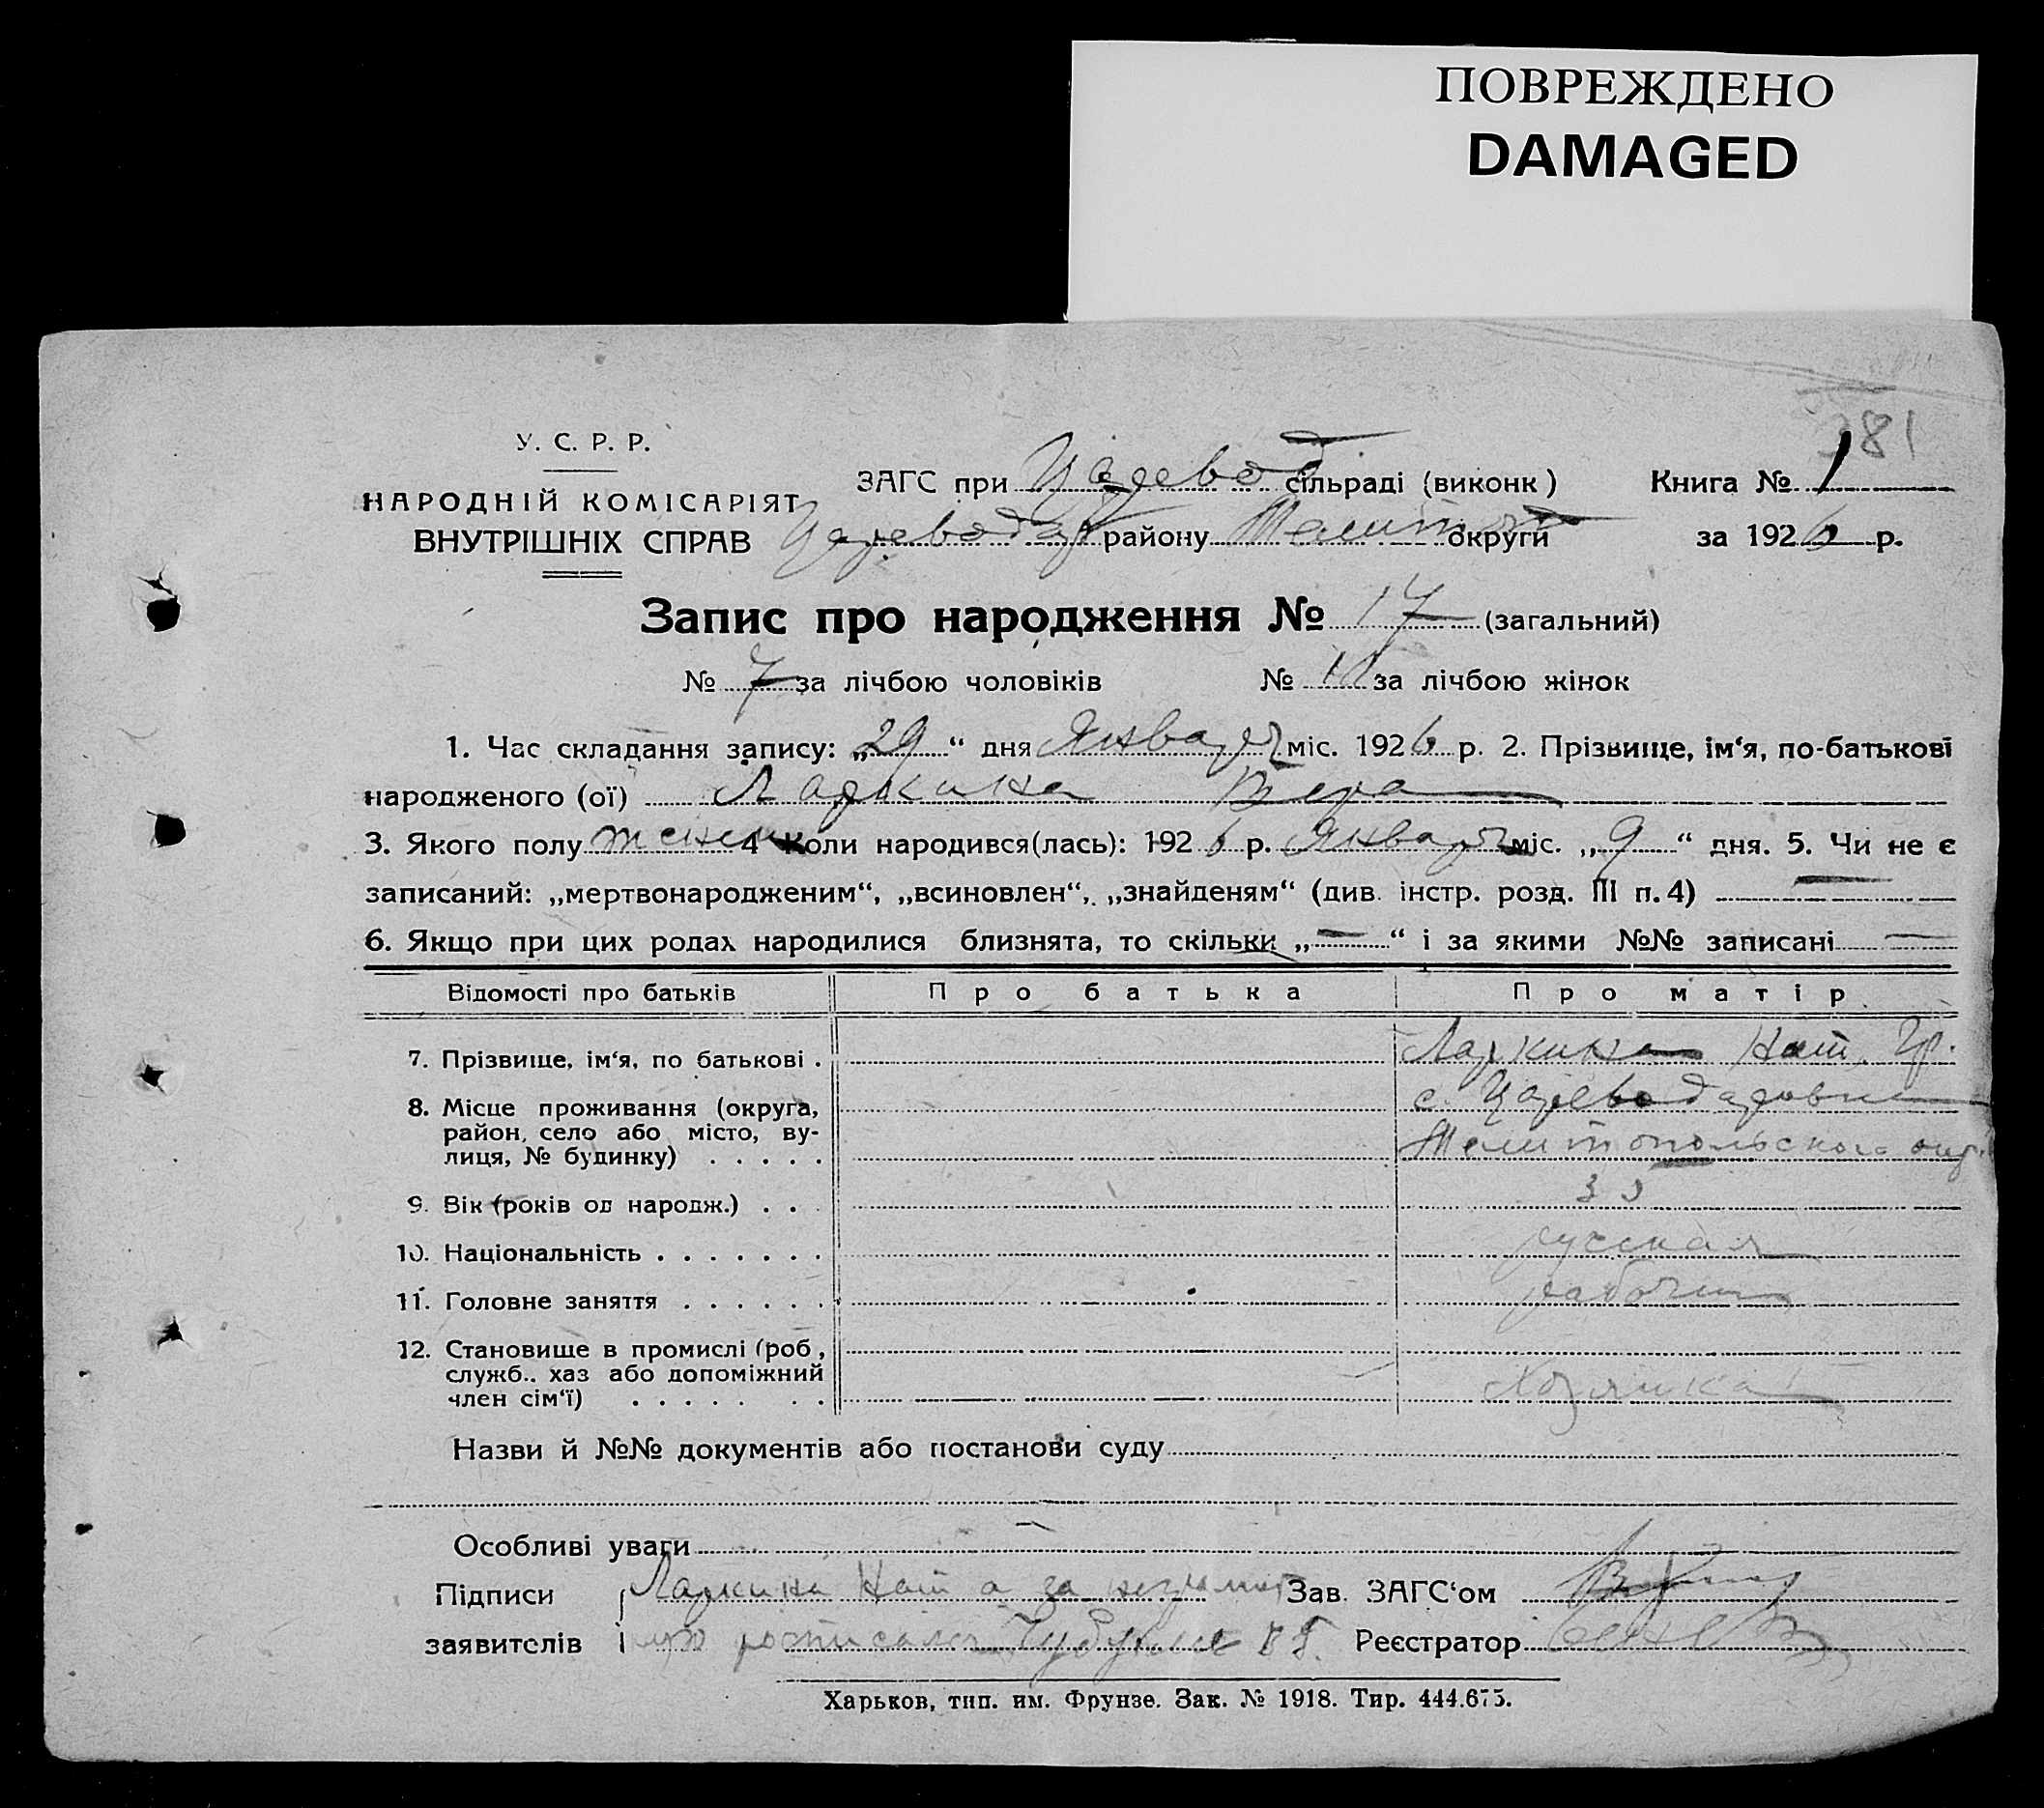 ПОВРЕЖДЕНО
DAMAGED
381
У. С. Р. Р.
НАРОДНІЙ КОМІСАРІЯТ
ВНУТРІШНІХ СПРАВ
ЗАГС при Царевод сільраді (виконк) Книга № 1
Цареводар району Мелитоп округи за 1926 р.
Запис про народження № 17 (загальний)
№ 7 за лічбою чоловіків № 10 за лічбою жінок
1. Час складання запису: „29“ дня Января міс. 1926 р. 2. Прізвище, ім‘я, по-батькові
народженого (ої) Ларкина Вера
3. Якого полу женск 4 Коли народився(лась): 1926 р. Января міс. „9“ дня. 5. Чи не є
записаний: „мертвонародженим“, „всиновлен“, „знайденям“ (див. інстр. розд. III п. 4) —
6. Якщо при цих родах народилися близнята, то скільки „—“ і за якими №№ записані —
Відомості про батьків Про батька Про матір
7. Прізвище, ім‘я, по батькові . Ларкина Нат. Гр.
8. Місце проживання (округа, с. Цареводаровка
район, село або місто, ву-
лиця, № будинку) . . . . . Мелитопольского окр.
9. Вік (років од народж.) . . .
10. Національність . . . . . . . русская
11. Головне заняття . . . . . .
12. Становище в промислі (роб,
служб.. хаз або допоміжний
член сім‘ї) . . . . . . . Хозяйка
Назви й №№ документів або постанови суду
Особливі уваги —
Підписи Ларкина Нат а за неграмот Зав. ЗАГС‘ом
заявителів ную росписался Реєстратор
Харьков, тип. им. Фрунзе. Зак. № 1918. Тир. 444.675.